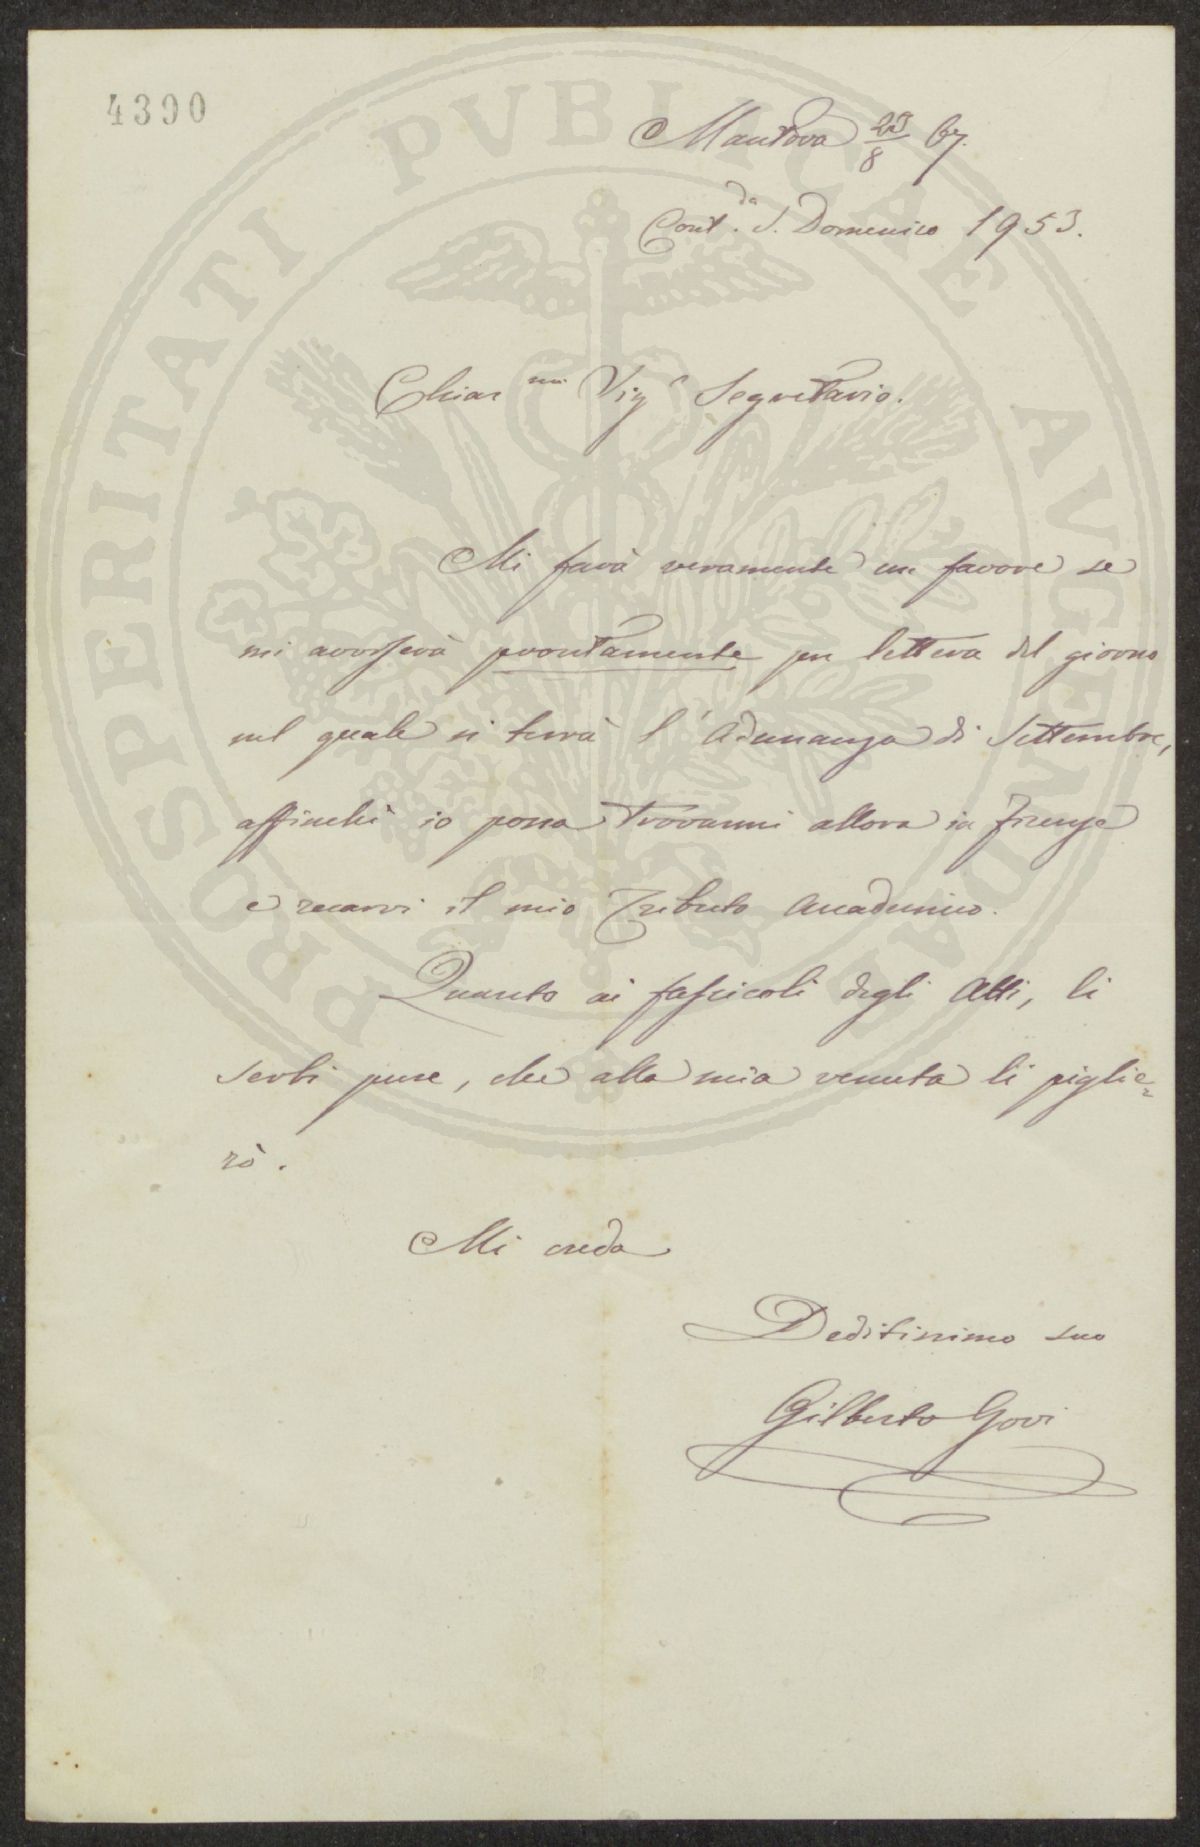 4390
PROSPERITATI PVBLICAE AVGENDAE
Mantova 23/8 67.
Cont.da S. Domenico 1953.
Chiar.mo Sigr Segretario.
Mi farà veramente un favore se
mi avviserà prontamente per lettera del giorno
nel quale si terrà l'Adunanza di Settembre,
affinchè io possa trovarmi allora in Firenze
e recarvi il mio Tributo Accademico.
Quanto ai fascicoli degli Atti, li
serbi pure, che alla mia venuta li piglie=
rò.
Mi creda
Deditissimo suo
Gilberto Govi